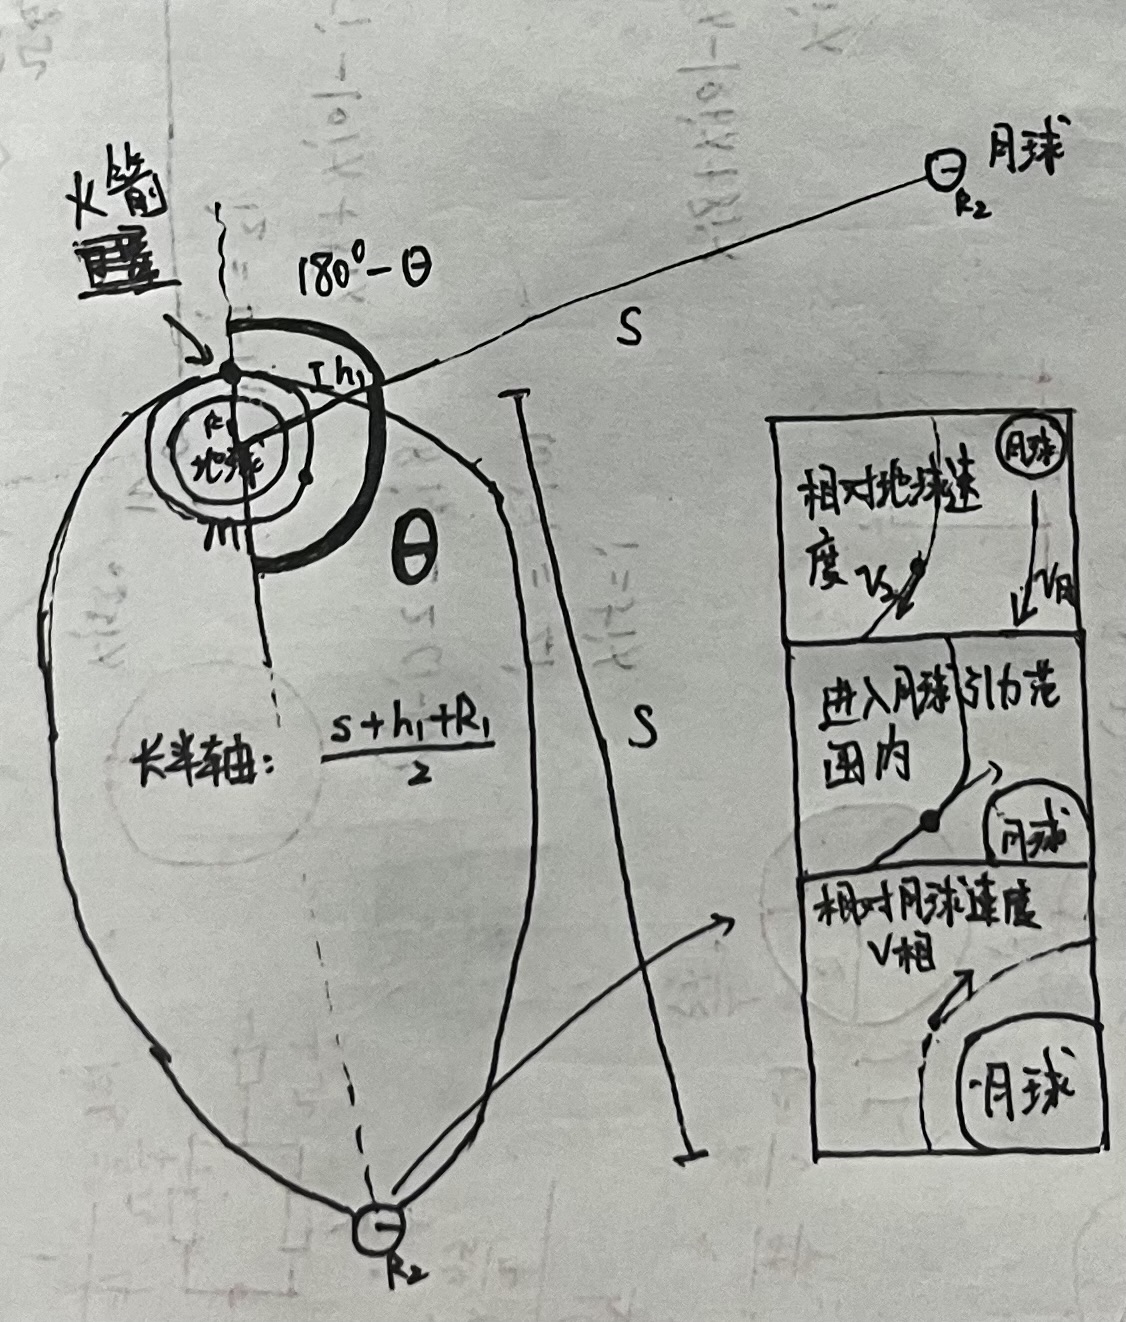 月球
R₂
火箭
位置
180°-θ
S
h₁
R₁
地球
θ
S
长半轴: (s+h₁+R₁)/2
R₂
月球
相对地球速
度 V₂
V月
进入月球引力范
围内
月球
相对月球速度
V相
月球